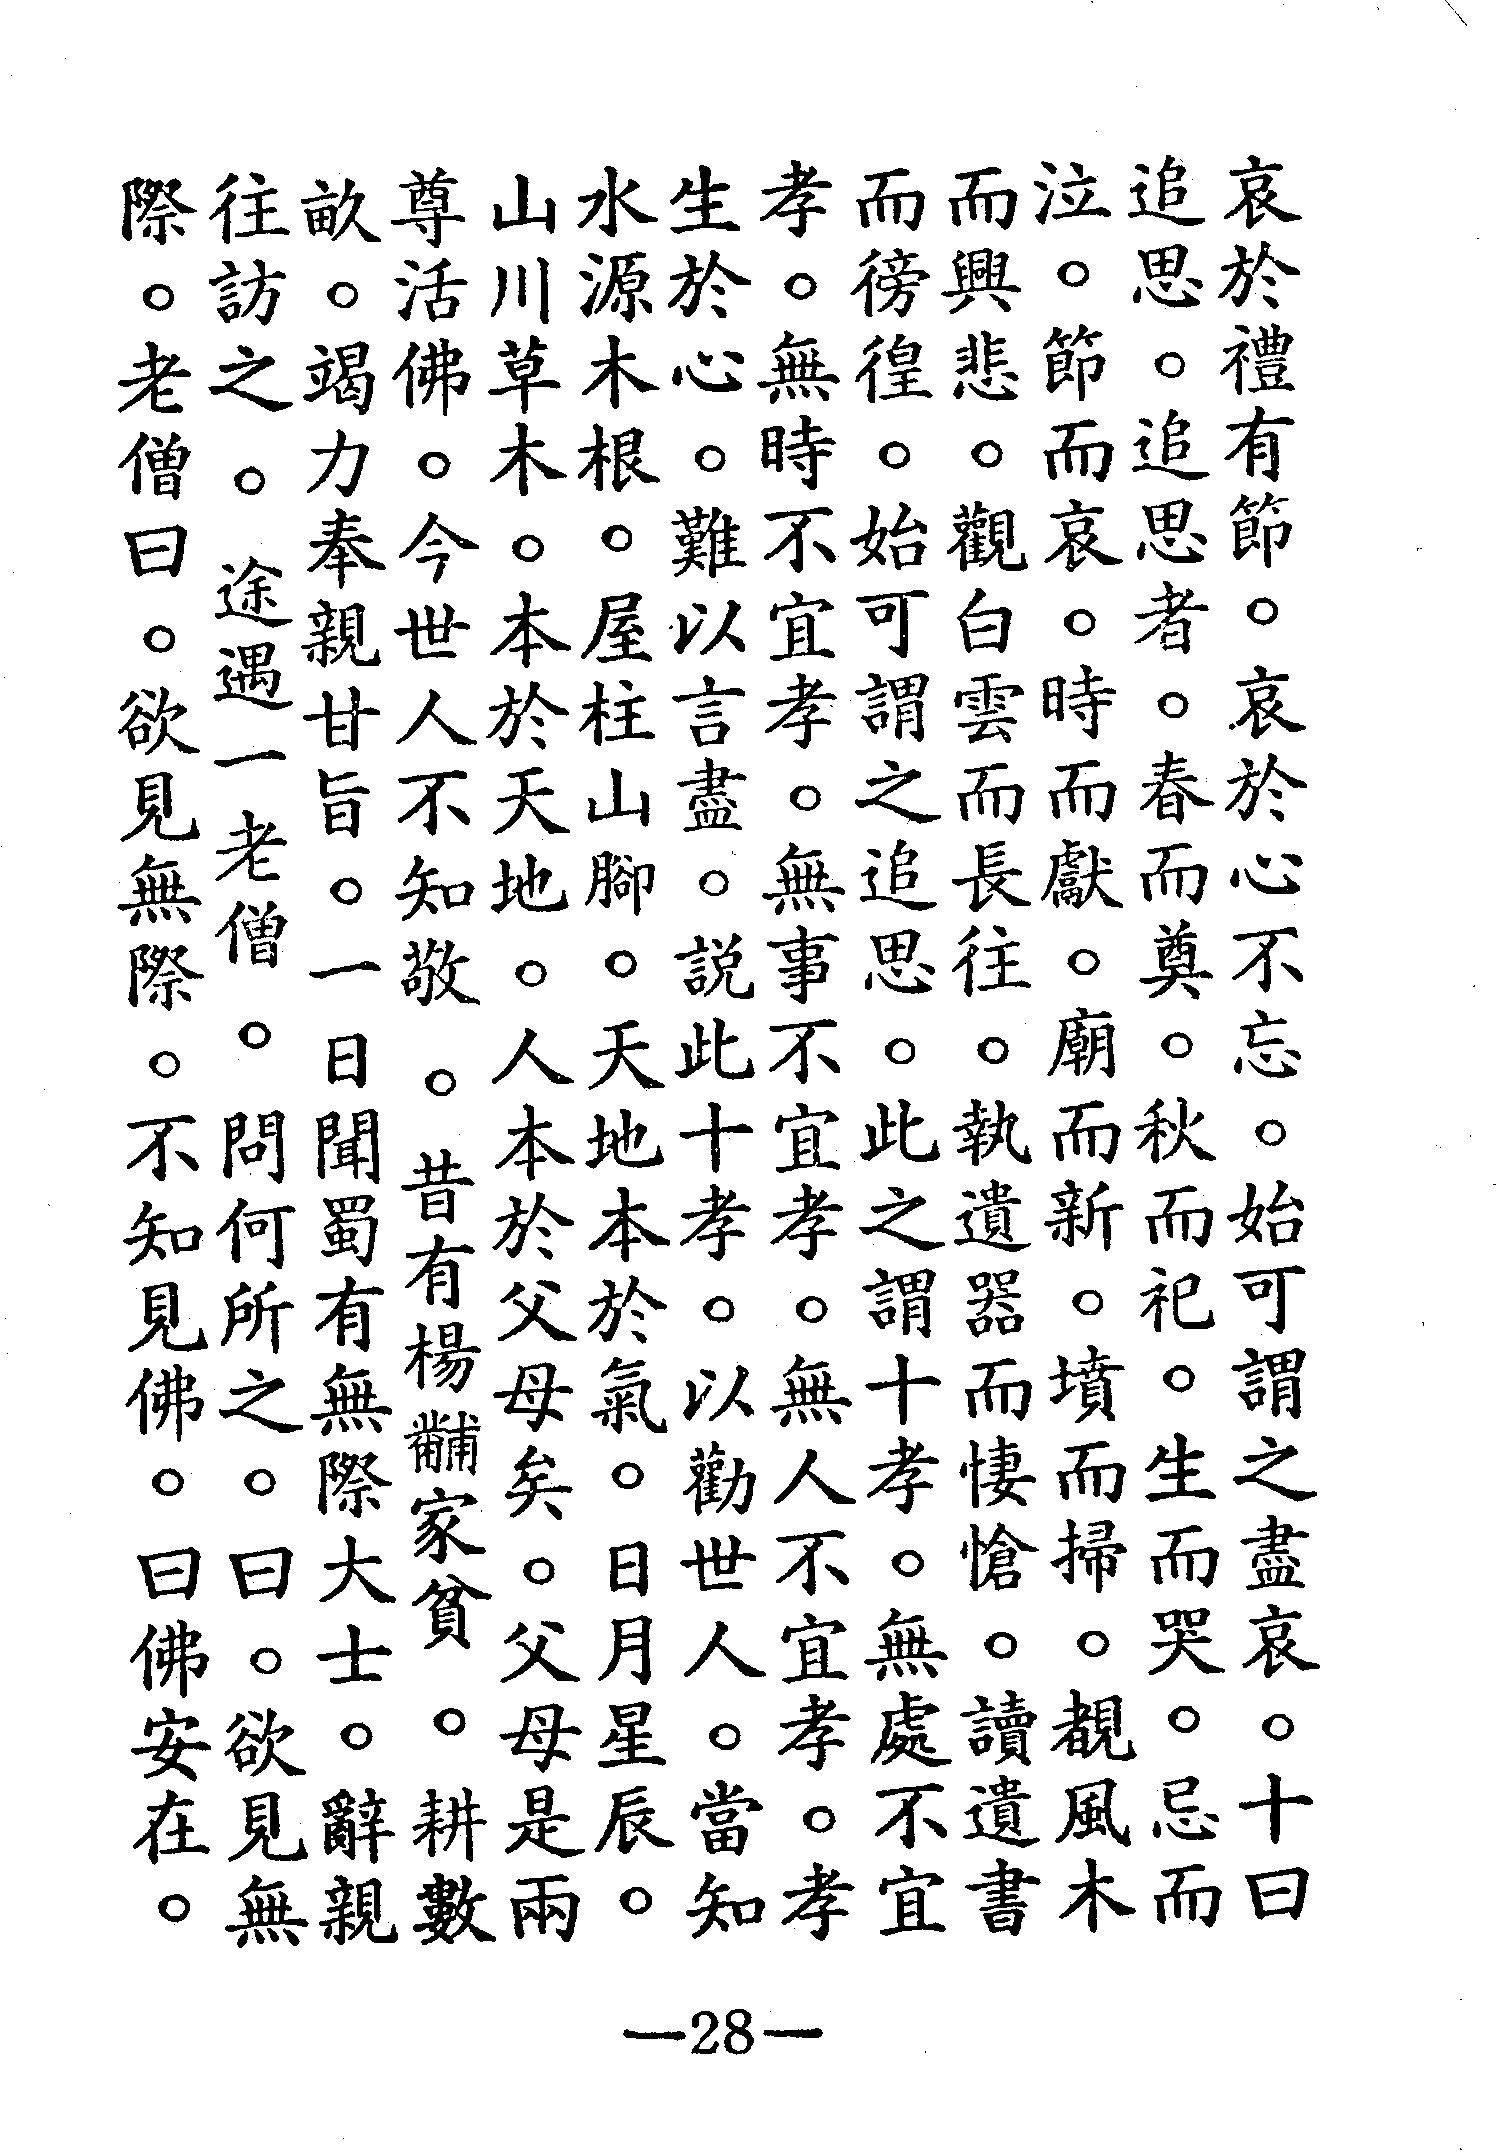 哀於禮有節。哀於心不忘。始可謂之盡哀。十曰
追思。追思者。春而奠。秋而祀。生而哭。忌而
泣。節而哀。時而獻。廟而新。墳而掃。覩風木
而興悲。觀白雲而長往。執遺器而悽愴。讀遺書
而徬徨。始可謂之追思。此之謂十孝。無處不宜
孝。無時不宜孝。無事不宜孝。無人不宜孝。孝
生於心。難以言盡。説此十孝。以勸世人。當知
水源木根。屋柱山腳。天地本於氣。日月星辰。
山川草木。本於天地。人本於父母矣。父母是兩
尊活佛。今世人不知敬。昔有楊黼家貧。耕數
畝。竭力奉親甘旨。一日聞蜀有無際大士。辭親
往訪之。途遇一老僧。問何所之。曰。欲見無
際。老僧曰。欲見無際。不知見佛。曰佛安在。
—28—